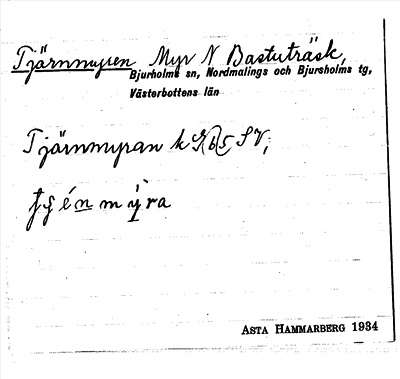 Tjärnmyren Myr N Bastuträsk,
Bjurholms sn, Nordmalings och Bjursholms tg,
Västerbottens län
Tjärnmyran k SV;
ASTA HAMMARBERG 1934